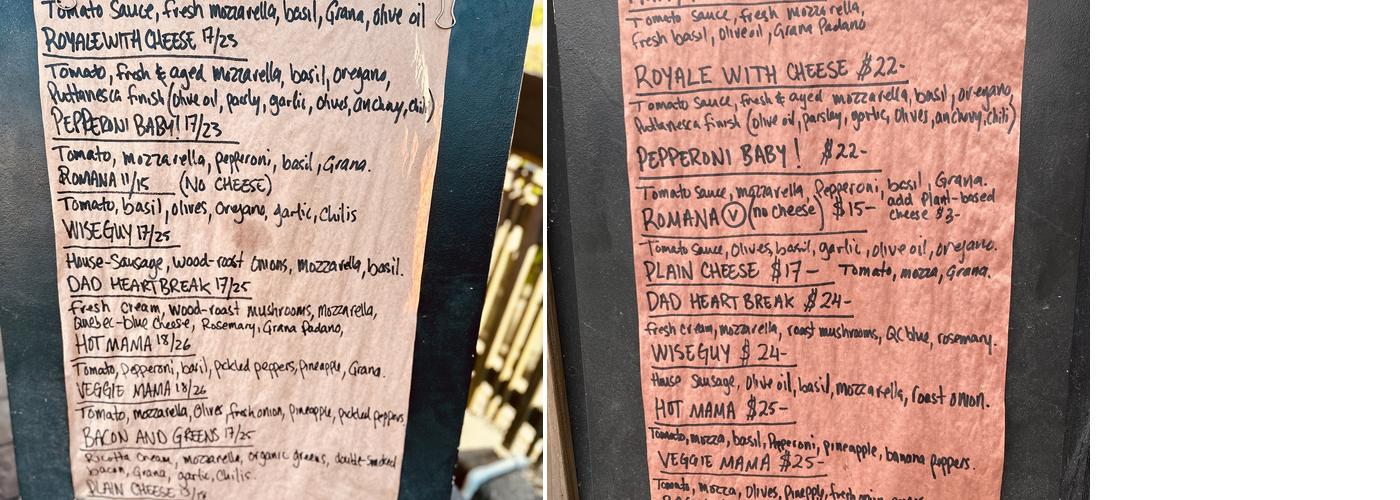 Tomato Sauce, fresh mozzarella, basil, Grana, olive oil
ROYALE WITH CHEESE 17/25
Tomato, fresh & aged mozzarella, basil, oregano,
Puttanesca finish (olive oil, parsly, garlic, olives, anchovy, chili)
PEPPERONI BABY! 17/23
Tomato, mozzarella, pepperoni, basil, Grana.
ROMANA 11/15 (NO CHEESE)
Tomato, basil, olives, oregano, garlic, chilis
WISEGUY 17/25
House-Sausage, wood-roast onions, mozzarella, basil.
DAD HEARTBREAK 17/25
Fresh Cream, wood-roast mushrooms, mozzarella,
Quebec-blue cheese, Rosemary, Grana Padano,
HOT MAMA 18/26
Tomato, pepperoni, basil, pickled peppers, pineapple, Grana.
VEGGIE MAMA 18/26
Tomato, mozzarella, Olives, fresh onion, pineapple, pickled peppers
BACON AND GREENS 17/25
Ricotta Cream, mozzarella, organic greens, double-smoked
bacon, Grana, garlic, chilis.
PLAIN CHEESE
Tomato Sauce, fresh mozzarella,
fresh basil, olive oil, Grana Padano
ROYALE WITH CHEESE $22-
Tomato sauce, fresh & aged mozzarella, basil, oregano
Puttanesca finish (olive oil, parsley, garlic, olives, anchovy, chili)
PEPPERONI BABY! $22-
Tomato sauce, mozzarella, Pepperoni, basil, Grana.
ROMANA V (no cheese) $15- add plant-based
cheese $3-
Tomato sauce, Olives, basil, garlic, olive oil, oregano.
PLAIN CHEESE $17- Tomato, mozza, Grana.
DAD HEARTBREAK $24-
fresh cream, mozzarella, roast mushrooms, QC blue, rosemary.
WISEGUY $24-
House Sausage, Olive oil, basil, mozzarella, roast onion.
HOT MAMA $25-
Tomato, mozza, basil, Pepperoni, pineapple, banana peppers.
VEGGIE MAMA $25-
Tomato, mozza, Olives, Pineapple, fresh onion